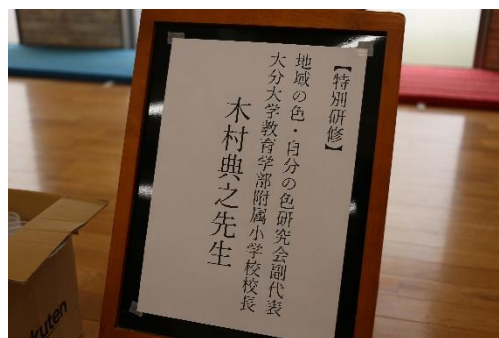 【特別研修】
地域の色・自分の色研究会副代表
大分大学教育学部附属小学校校長
木村典之先生
kuten